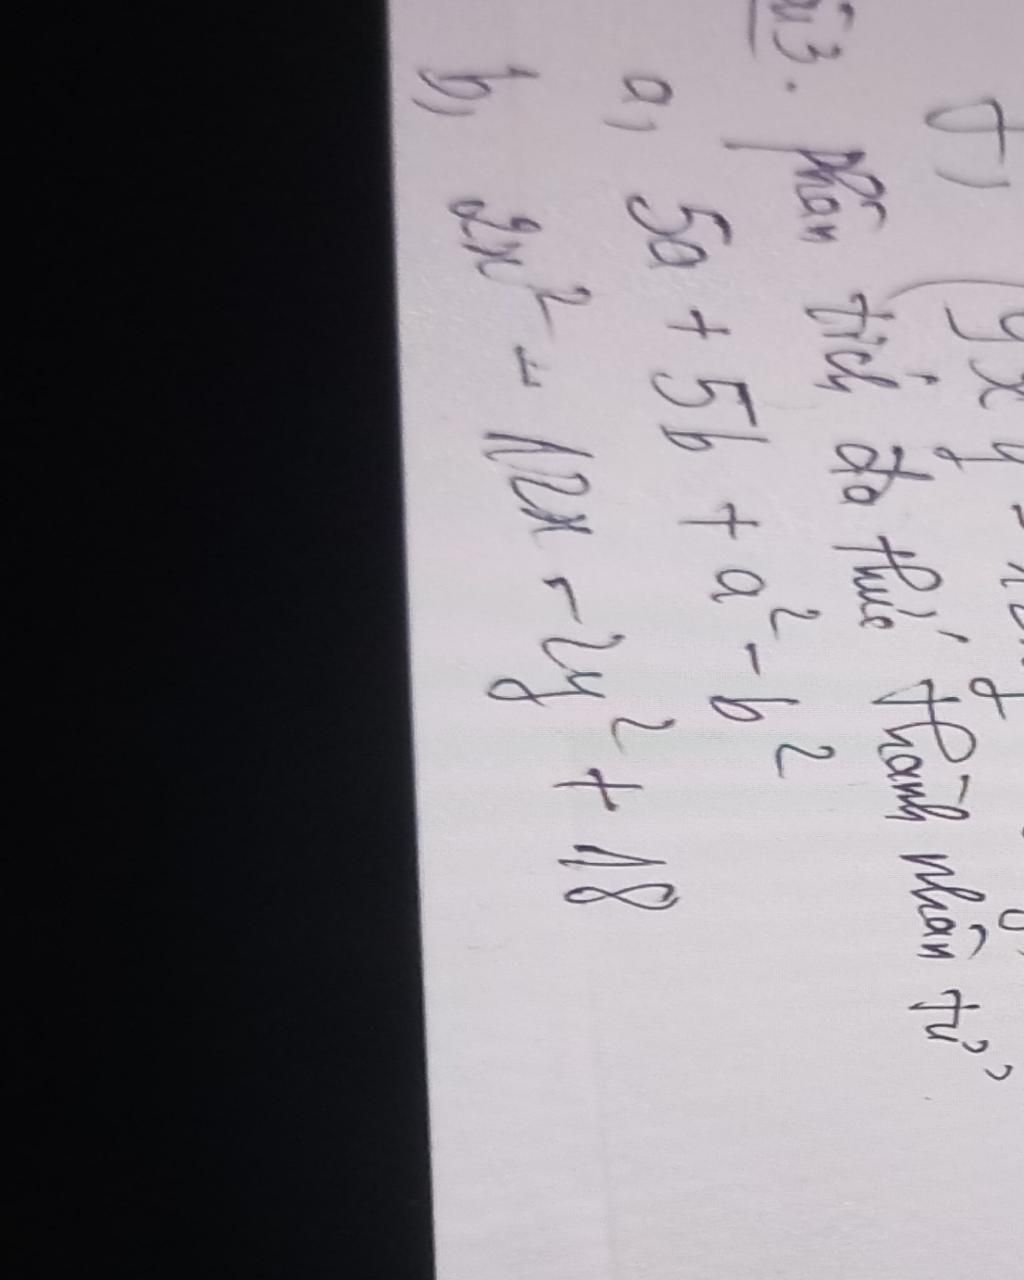 3. Phân tích đa thức thành nhân tử
a, 5a + 5b + a² - b²
b, 2x² - 12x - 2y² + 18